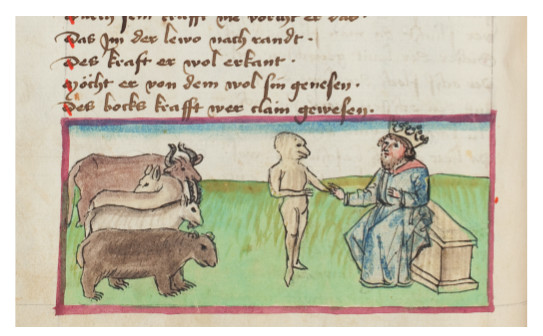 Das Jm der lewo nach randt ·
Des kraft er wol erkant ·
Möcht er von dem wol sin genesen ·
Des bocks krafft wer clain gewesen ·